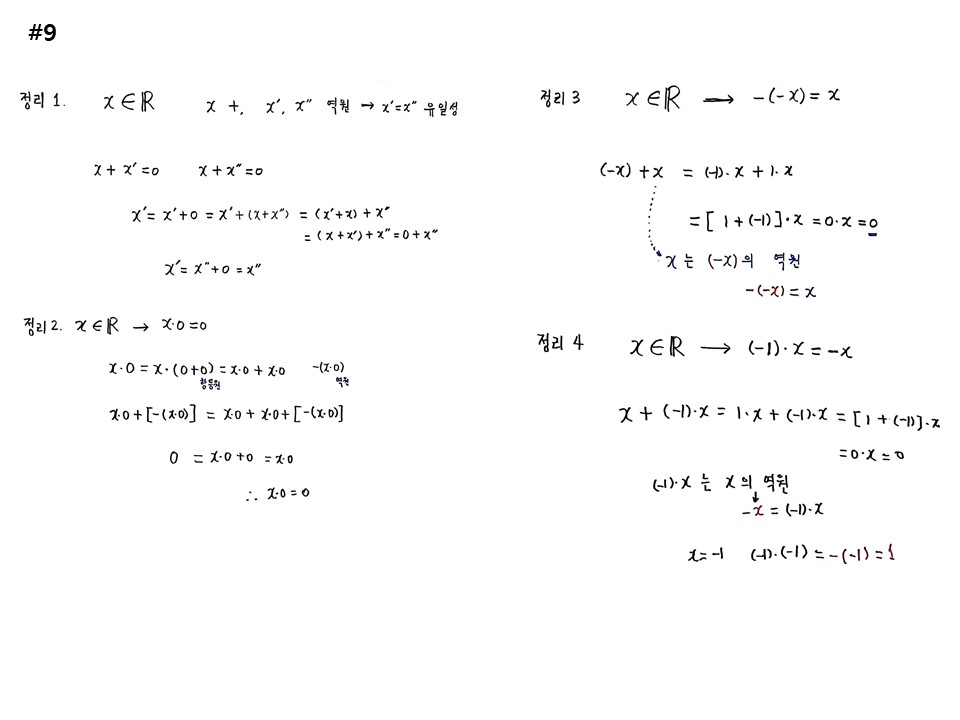 #9
정리 1. x ∈ ℝ x +, x', x'' 역원 → x' = x'' 유일성
x + x' = 0 x + x'' = 0
x' = x' + 0 = x' + (x + x'') = (x' + x) + x''
= (x + x') + x'' = 0 + x''
x' = x'' + 0 = x''
정리 2. x ∈ ℝ → x·0 = 0
x·0 = x·(0+0) = x·0 + x·0 -(x·0)
항등원 역원
x·0 + [-(x·0)] = x·0 + x·0 + [-(x·0)]
0 = x·0 + 0 = x·0
∴ x·0 = 0
정리 3 x ∈ ℝ → -(-x) = x
(-x) + x = (-1)·x + 1·x
= [1 + (-1)]·x = 0·x = 0
x는 (-x)의 역원
-(-x) = x
정리 4 x ∈ ℝ → (-1)·x = -x
x + (-1)·x = 1·x + (-1)·x = [1 + (-1)]·x
= 0·x = 0
(-1)·x 는 x의 역원
↓
-x = (-1)·x
x = -1 (-1)·(-1) = -(-1) = 1